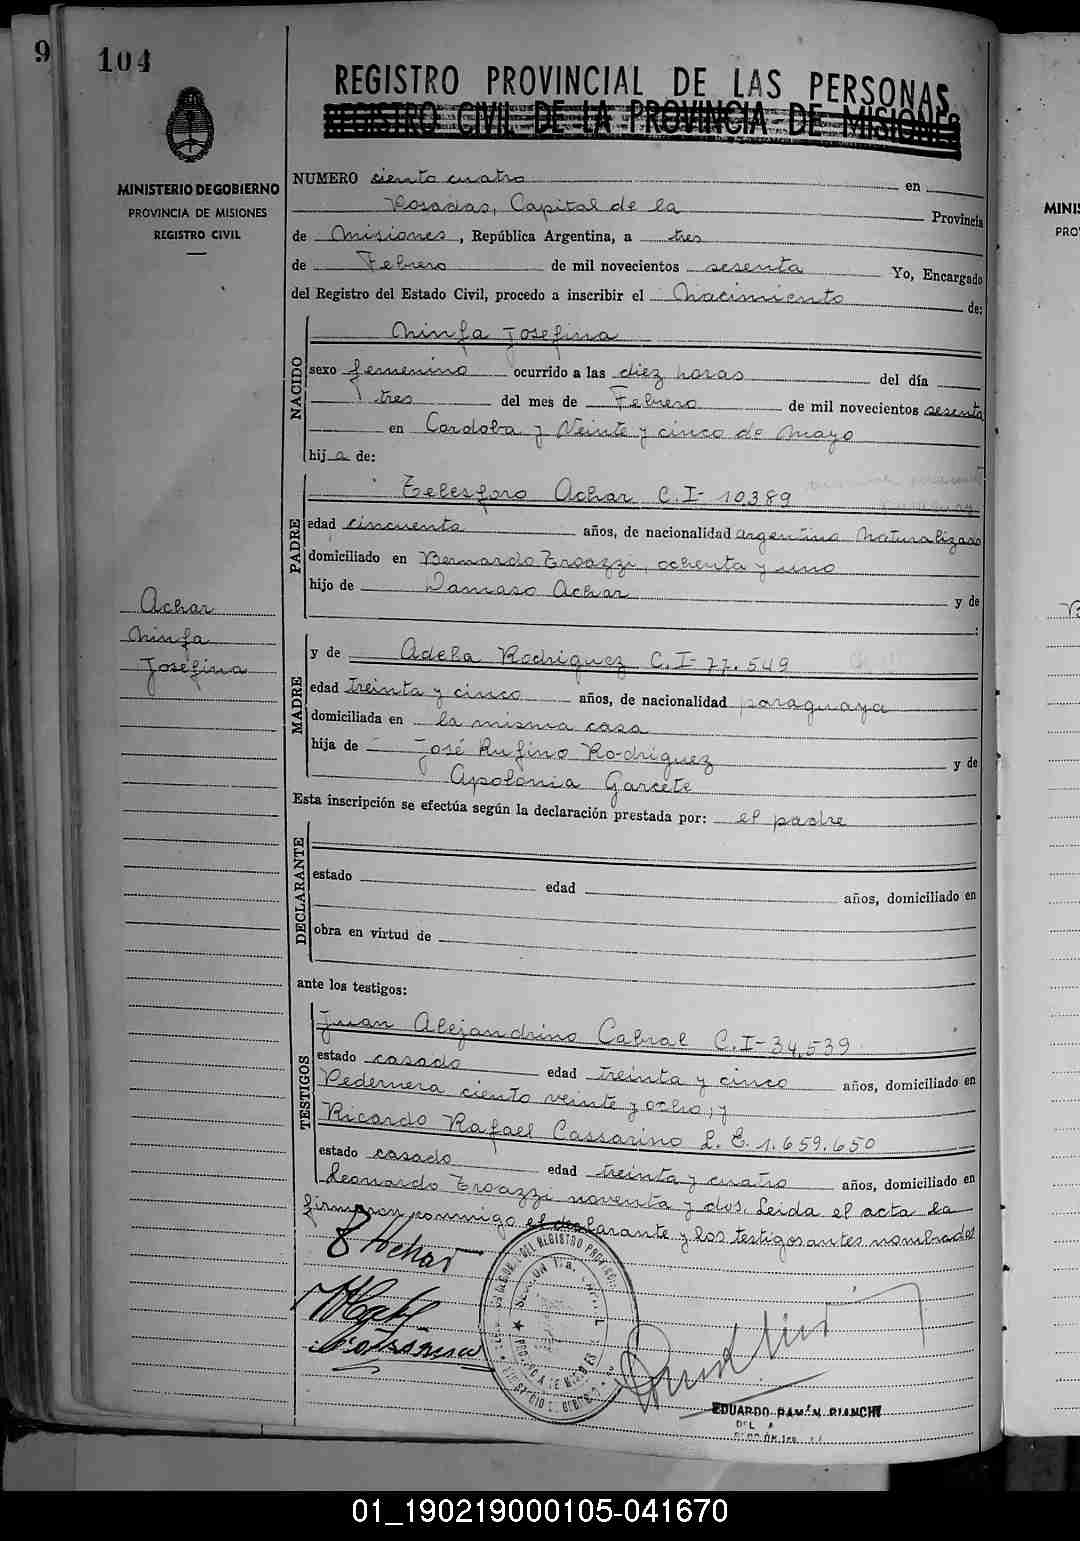 9
104
REGISTRO PROVINCIAL DE LAS PERSONAS
REGISTRO CIVIL DE LA PROVINCIA DE MISIONES
MINISTERIO DE GOBIERNO
PROVINCIA DE MISIONES
REGISTRO CIVIL
NUMERO ciento cuatro en
Posadas, Capital de la Provincia
de Misiones, República Argentina, a tres
de Febrero de mil novecientos sesenta Yo, Encargado
del Registro del Estado Civil, procedo a inscribir el Nacimiento de:
NACIDO
Ninfa Josefina
sexo femenino ocurrido a las diez horas del día
tres del mes de Febrero de mil novecientos sesenta
en Cordoba y Veinte y cinco de Mayo
hij a de:
PADRE
Telesforo Achar C.I- 10.389
edad cincuenta años, de nacionalidad argentino naturalizado
domiciliado en Bernardo Troazzi, ochenta y uno
hijo de Damaso Achar y de
Achar
Ninfa
Josefina
MADRE
y de Adela Rodriguez C.I- 77.549
edad treinta y cinco años, de nacionalidad paraguaya
domiciliada en la misma casa
hija de José Rufino Rodriguez y de
Apolonia Garcete
Esta inscripción se efectúa según la declaración prestada por: el padre
DECLARANTE
estado edad años, domiciliado en
obra en virtud de
ante los testigos:
TESTIGOS
Juan Alejandrino Cabral C.I- 34.539
estado casado edad treinta y cinco años, domiciliado en
Pedernera ciento veinte y ocho, y
Ricardo Rafael Cassarino L.E. 1.659.650
estado casado edad treinta y cuatro años, domiciliado en
Leonardo Troazzi noventa y dos. Leida el acta la
firmaron conmigo el declarante y los testigos antes nombrados
T Achar
EDUARDO RAMÓN BIANCHI
MINIS
PRO
01_190219000105-041670